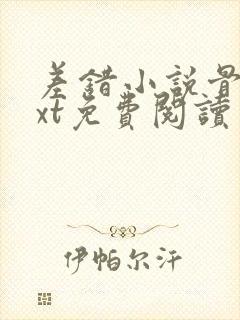 差錯小說骨
xt免費閱讀
伊帕尔汗